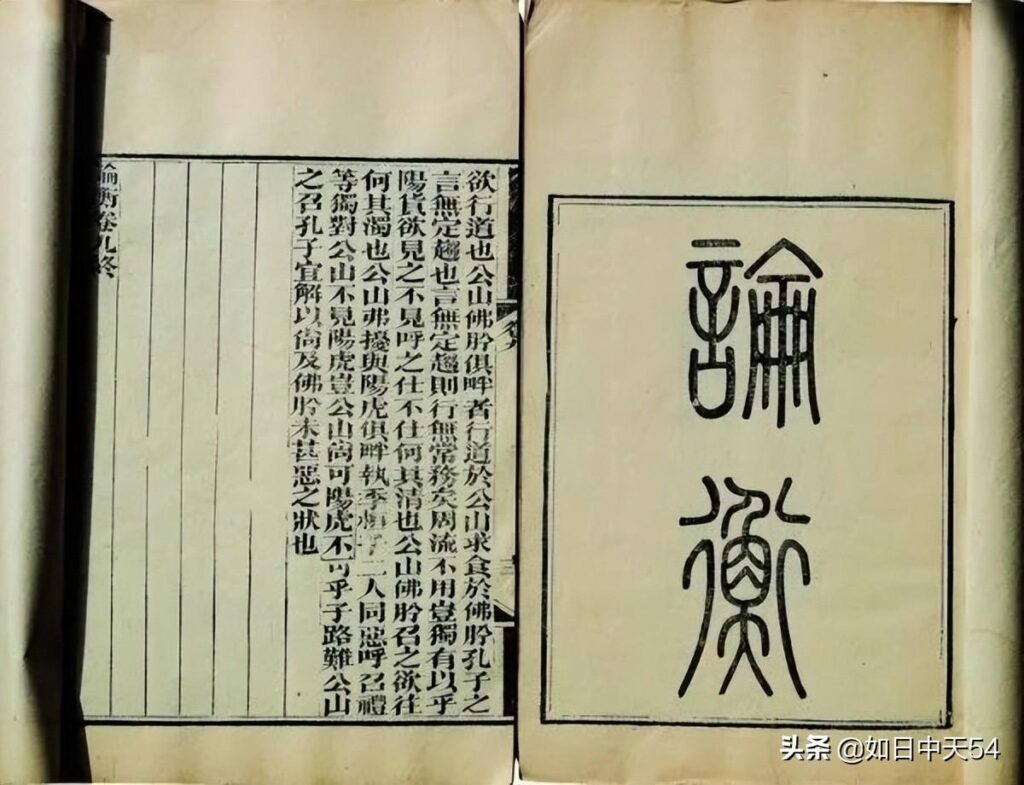 論衡
欲行道也公山佛肸俱畔者行道於公山求食於佛肸孔子之
言無定趨也言無定趨則行無常務矣周流不用豈獨有以乎
陽貨欲見之不見呼之仕不仕何其清也公山佛肸召之欲往
何其濁也公山弗擾與陽虎俱畔執季桓子二人同惡呼召禮
等獨對公山不見陽虎豈公山尚可陽虎不可乎子路難公山
之召孔子宜解以尚及佛肸未甚惡之狀也
論衡卷九終
头条 @如日中天54